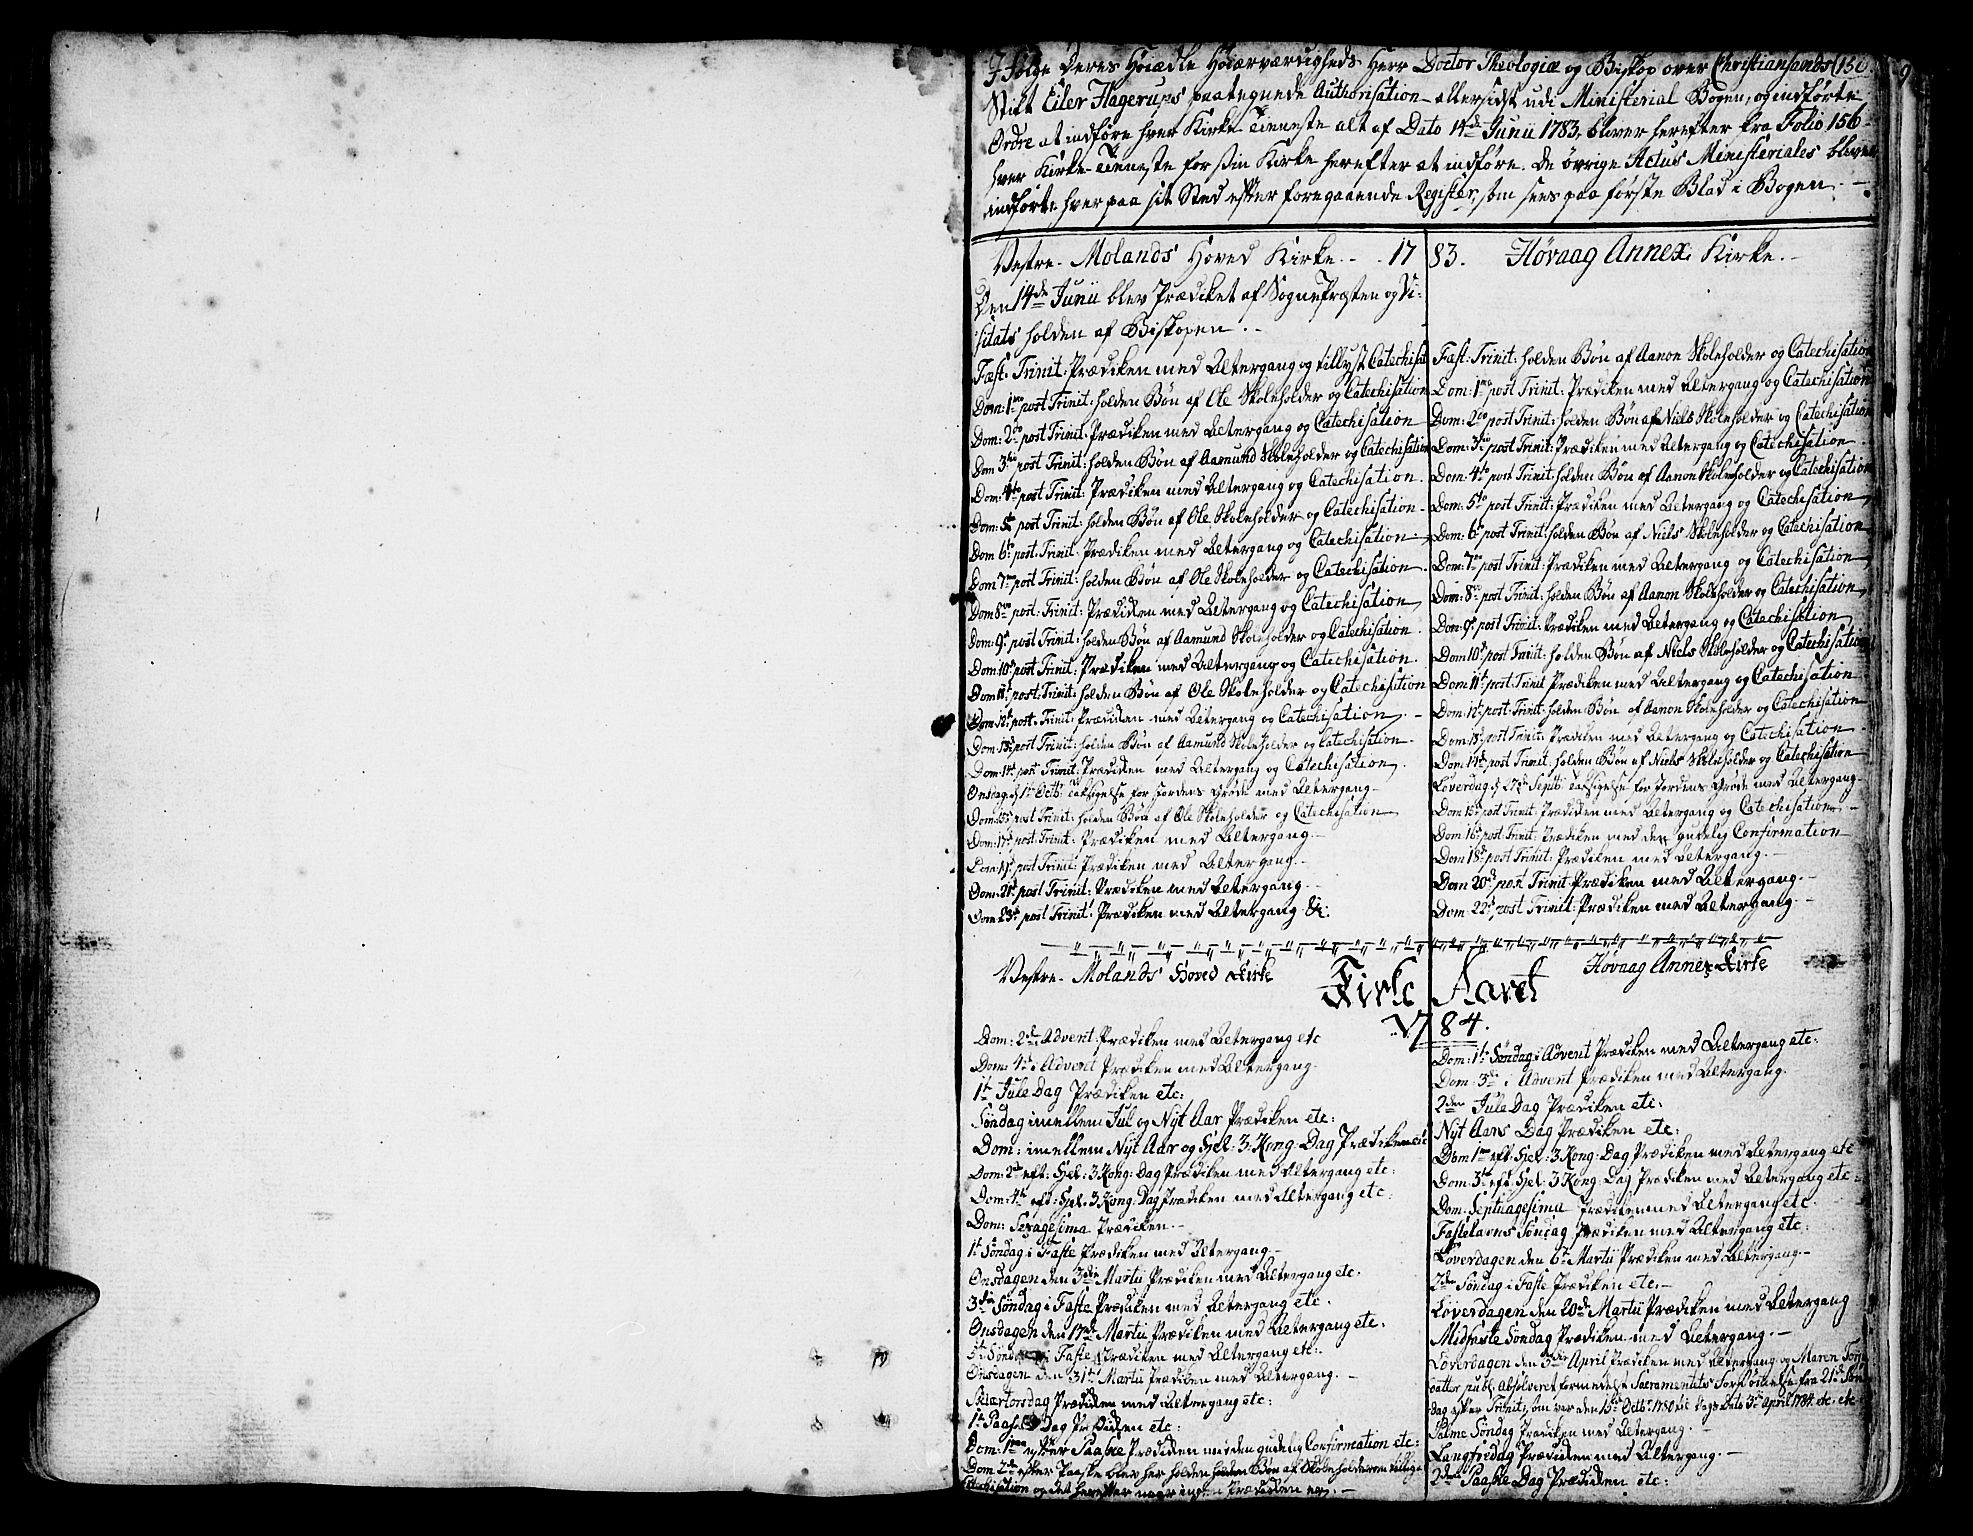 I følge Deres Høiædle Høiærværdigheds Herr Doctor Theologiæ og Biskop over Christiansands
Stift Eiler Hagerups paategnede Authorisation allersidst udi Ministerial Bogen, og indførte
Ordre at indføre hver Kirke Tienneste alt af Dato 14de Junii 1783, bliver herefter fra Folio 156
hver Kirke-Tienneste for sin Kirke herefter at indføre. De øvrige Actus Ministeriales bliver
indførte hver paa sit Sted efter foregaaende Register, som sees paa første Blad i Bogen.
Vestre-Molands Hoved Kirke. 17
Den 14de Junii blev Prædiket af SognePræsten og Vi-
sitats holden af Biskopen.
Fæst. Trinit: Prædiken med Altergang og tillyst Catechisat
Dom: 1mo post Trinit: holden Bøn af Ole Skoleholder og Catechisation
Dom: 2do post Trinit: Prædiken med Altergang og Catechisation
Dom 3tio post Trinit: holden Bøn af Aamund Skoleholder og Catechisation
Dom: 4to post Trinit: Prædiken med Altergang og Catechisation.
Dom: 5to post Trinit: holden Bøn af Ole Skoleholder og Catechisation
Dom 6to post Trinit: Prædiken med Altergang og Catechisation
Dom 7mo post Trinit: holden Bøn af Ole Skoleholder og Catechisation.
Dom 8vo post: Trinit: Prædiken med Altergang og Catechisation
Dom: 9de post Trinit: holden Bøn af Aamund Skoleholder og Catechisation.
Dom: 10de post Trinit: Prædiken med Altergang og Catechisation.
Dom 11te post: Trinit: holden Bøn af Ole Skoleholder og Catechisation
Dom: 12te post: Trinit: Prædiken med Altergang og Catechisation.
Dom 13de post Trinit: holden Bøn af Aamund Skoleholder og Catechisation.
Dom: 14de post Trinit: Prædiken med Altergang og Catechisation.
Onsdag d 1te Octb: Taksigelse for Jordens Grøde med Altergang
Dom: 15de post Trinit: holden Bøn af Ole Skoleholder og Catechisation
Dom: 17de post Trinit: Prædiken med Altergang.
Dom: 19de post Trinit: Prædiken med Altergang.
Dom: 21de post Trinit: Prædiken med Altergang.
Dom 23de post Trinit: Prædiken med Altergang &c:
83. Høvaag Annex: Kirke.
Fæst: Trinit: holden Bøn af Aanon Skoleholder og Catechisation
Dom: 1mo post Trinit: Prædiken med Altergang og Catechisation
Dom: 2do post Trinit: holden Bøn af Niels Skoleholder og Catechisation
Dom: 3tio post Trinit: Prædiken med Altergang og Catechisation.
Dom: 4to post Trinit: holden Bøn af Aanon Skoleholder og Catechisation
Dom: 5to post Trinit: Prædiken med Altergang og Catechisation
Dom: 6to post Trinit: holden Bøn af Niels Skoleholder og Catechisation
Dom: 7mo post Trinit: Prædiken med Altergang og Catechisation
Dom: 8vo post Trinit: holden Bøn af Aanon Skoleholder og Catechisation
Dom: 9de post Trinit: Prædiken med Altergang og Catechisation
Dom 10de post Trinit: holden Bøn af Niels Skoleholder og Catechisation
Dom: 11te post: Trinit Prædiken med Altergang og Catechisation
Dom: 12te post: Trinit: holden Bøn af Aanon Skoleholder og Catechisation
Dom 13de post Trinit: Prædiken med Altergang og Catechisation.
Dom: 14de post Trinit. holden Bøn af Niels Skoleholder og Catechisation
Løverdag d 27de Septb: Taksigelse for Jordens Grøde med Altergang.
Dom 15de post Trinit: Prædiken med Altergang og Catechisation.
Dom 16de post Trinit: Prædiken med den gudelig Confirmation
Dom 18de post Trinit: Prædiken med Altergang.
Dom 20de post Trinit Prædiken med Altergang.
Dom: 22de post Trinit: Prædiken med Altergang.
Vestre-Molands Hoved Kirke
Høvaag Annex Kirke
Kirke Aaret
1784.
Dom: 2de i Advent Prædiken med Altergang etc
Dom: 4de i Advent Prædiken med Altergang.
1te JuleDag Prædiken etc:
Søndag imellem Jul og Nyt Aar Prædiken etc:
Dom: imellem Nyt Aar og Hel: 3 Kong: Dag Prædiken etc
Dom: 2de eft: Hel: 3 Kong: Dag Prædiken med Altergang etc:
Dom: 4te eft: Hel: 3 Kong: Dag Prædiken med Altergang etc:
Dom: Sexagesima Prædiken.
1te Søndag i Faste Prædiken med Altergang
Onsdagen den 3die Martii Prædiken med Altergang etc:
3die Søndag i Faste Prædiken med Altergang etc.
Onsdagen den 17de Martii Prædiken med Altergang etc:
5te Søndag i Faste Prædiken med Altergang etc:
Onsdagen den 31te Martii Prædiken med Altergang.
Skiærtorsdag Prædiken med Altergang etc:
1te Paaske Dag Prædiken etc:
Dom: 1mo efter Paaske Prædiken med den gudelig Confirmation etc:
Dom 2de efter Paaske blev her holden Bøn af Skoleholderen tillige
Catechisation og det herefter naar ingen Prædiken er.
Dom: 1te Søndag i Advent Prædiken med Altergang etc:
Dom: 3de i Advent Prædiken med Altergang.
2den JuleDag Prædiken etc:
Nyt Aars Dag Prædiken etc:
Dom 1mo eft: Hel: 3 Kong: Dag Prædiken med Altergang etc
Dom: 3te eft Hel: 3 Kong: Dag Prædiken med Altergang etc:
Dom: Septuagesima Prædiken med Altergang etc.
Fastelavns Søndag Prædiken med Altergang etc:
Løverdagen den 6te Martii Prædiken med Altergang.
2den Søndag i Faste Prædiken etc:
Løverdagen den 20de Martii Prædiken med Altergang
Midfaste Søndag Prædiken med Altergang.
Løverdagen den 3die April Prædiken med Altergang og Maren
datter publ: Absolveret formedelst Sacramentets fra 21de Søn
dag efter Trinit, som var den 15de Octb: 1780 etc dags Dato 3de April 1784 etc. etc
Palme Søndag Prædiken med Altergang.
Langfredag Prædiken med Altergang.
2den Paaske Dag Prædiken etc: